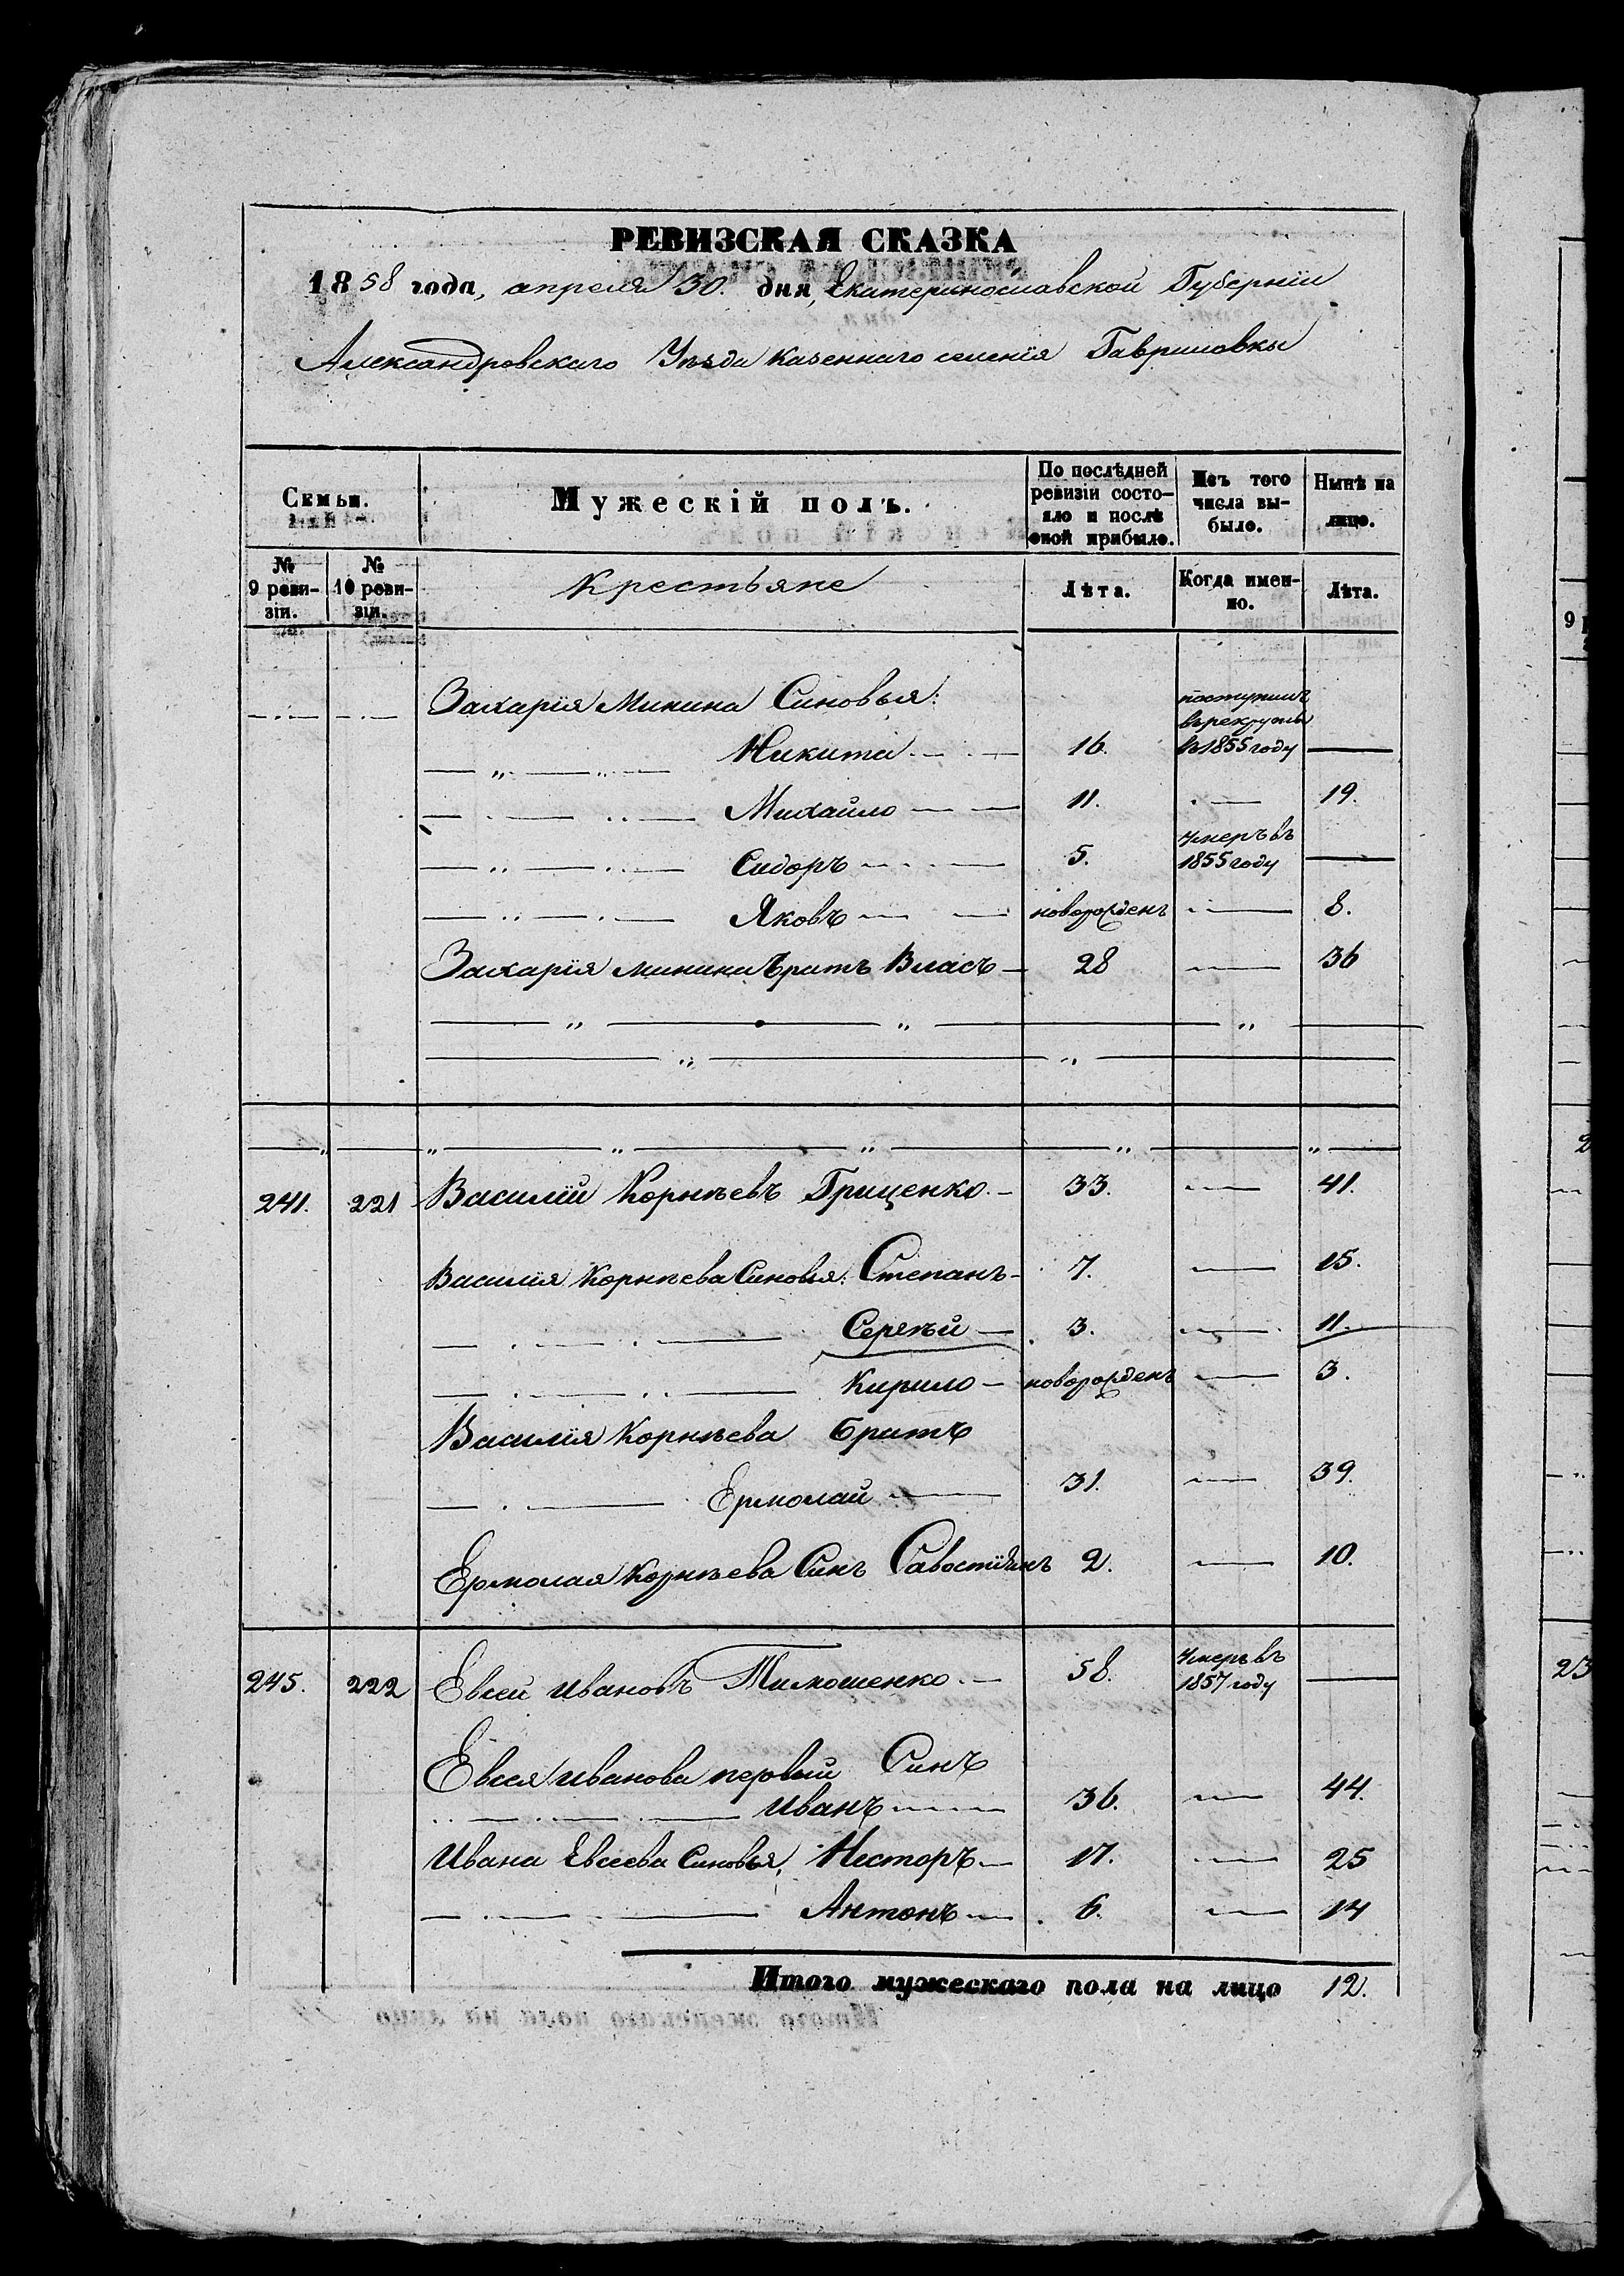 РЕВИЗСКАЯ СКАЗКА
1858 года, апреля 30. дня, Екатеринославской Губернїи
Александровскаго Уѣзда казеннаго селенїя Гавриловки
Семьи. Мужескій полъ. По послѣдней ревизіи состояло и послѣ оной прибыло. Изъ того числа выбыло. Нынѣ на лицо.
№ 9 ревизіи. № 10 ревизіи. Крестьяне Лѣта. Когда именно. Лѣта.
Захарїя Минина Синовья: поступилъ
в рекруты
Никита 16. в 1855 году —
Михайло 11. — 19.
Сидоръ 5. умеръ въ 1855 году —
Яковъ новорожденъ — 8.
Захарїя Минина братъ Власъ — 28 — 36
241. 221 Василїй Корнѣевъ Гриценко. — 33. — 41.
Василїя Корнѣева Синовья: Степанъ — 7. — 15.
Сергѣй — 3. — 11.
Кирило — новорожденъ — 3.
Василїя Корнѣева братъ
Ермолай — 31. — 39.
Ермолая Корнѣева Синъ Савостїянъ 2. — 10.
245. 222 Евсей Ивановъ Тимошенко. — 58. умеръ въ 1857 году —
Евсея Иванова первый Синъ
Иванъ — 36. — 44.
Ивана Евсеева Синовья, Несторъ — 17. — 25
Антонъ — 6. — 14
Итого мужескаго пола на лицо 12.
9
2
23